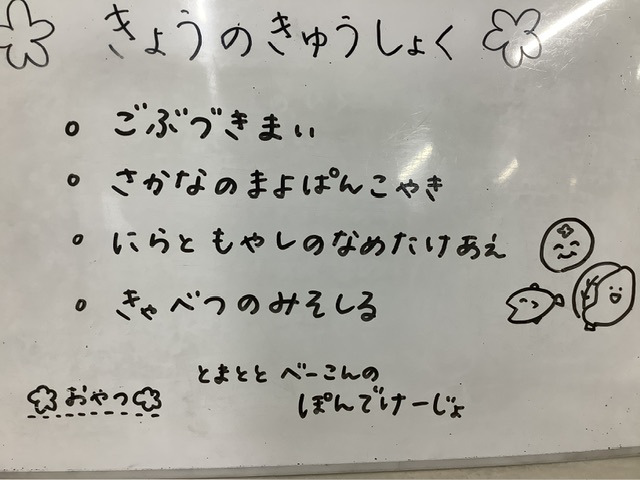 きょうのきゅうしょく
ごぶづきまい
さかなのまよぱんこやき
にらともやしのなめたけあえ
きゃべつのみそしる
おやつ
とまとと べーこんの
ぽんでけーじょ